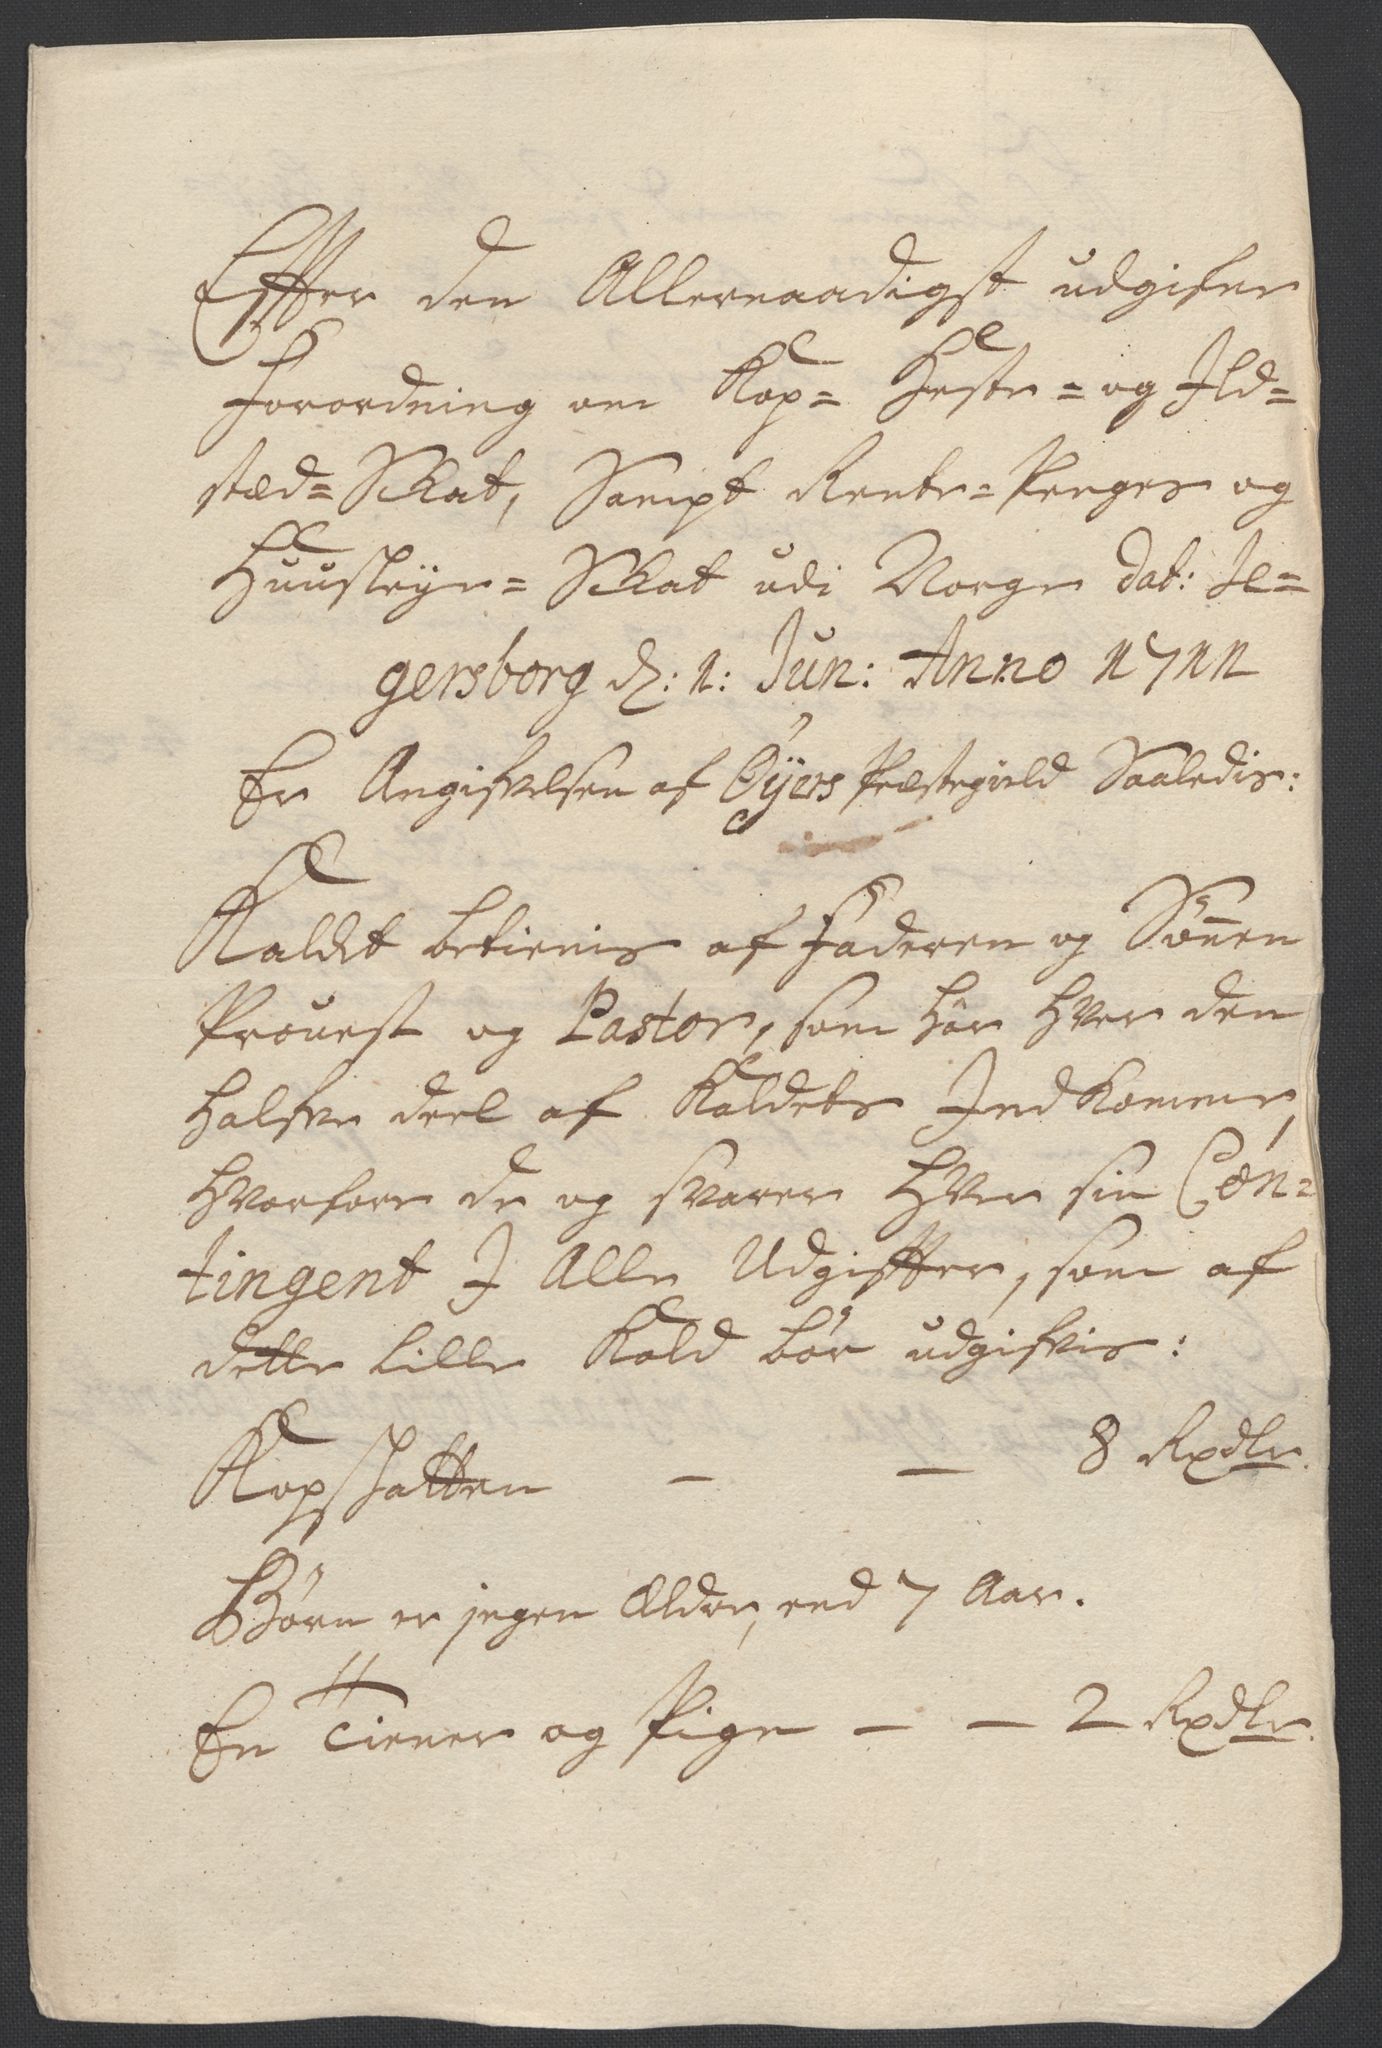 Effter den Allernaadigst udgifne
Forordning om Kop= Heste= og Ild=
stæd= Skat, Sampt Rente= Penges og
Huusleye= Skat udi Norge Dat: Je=
gersborg d: 1: Jun: Anno 1711
Er Angifvelsen af Öÿers Præstegield Saaledis:
Kaldet betienis af Faderen og Sönnen
Prouest og Pastor, som har hver den
halfve deel af Kaldets Indkomme,
hvorfore de og svarer hver sin Con=
tingent I Alle Udgiffter, som af
dette lille Kald bör udgifvis:
Kopskatten — — 8 Rxdlr.
Börn er jngen Ældre, end 7 Aar.
En Tiener og Pige — — 2 Rxdlr.